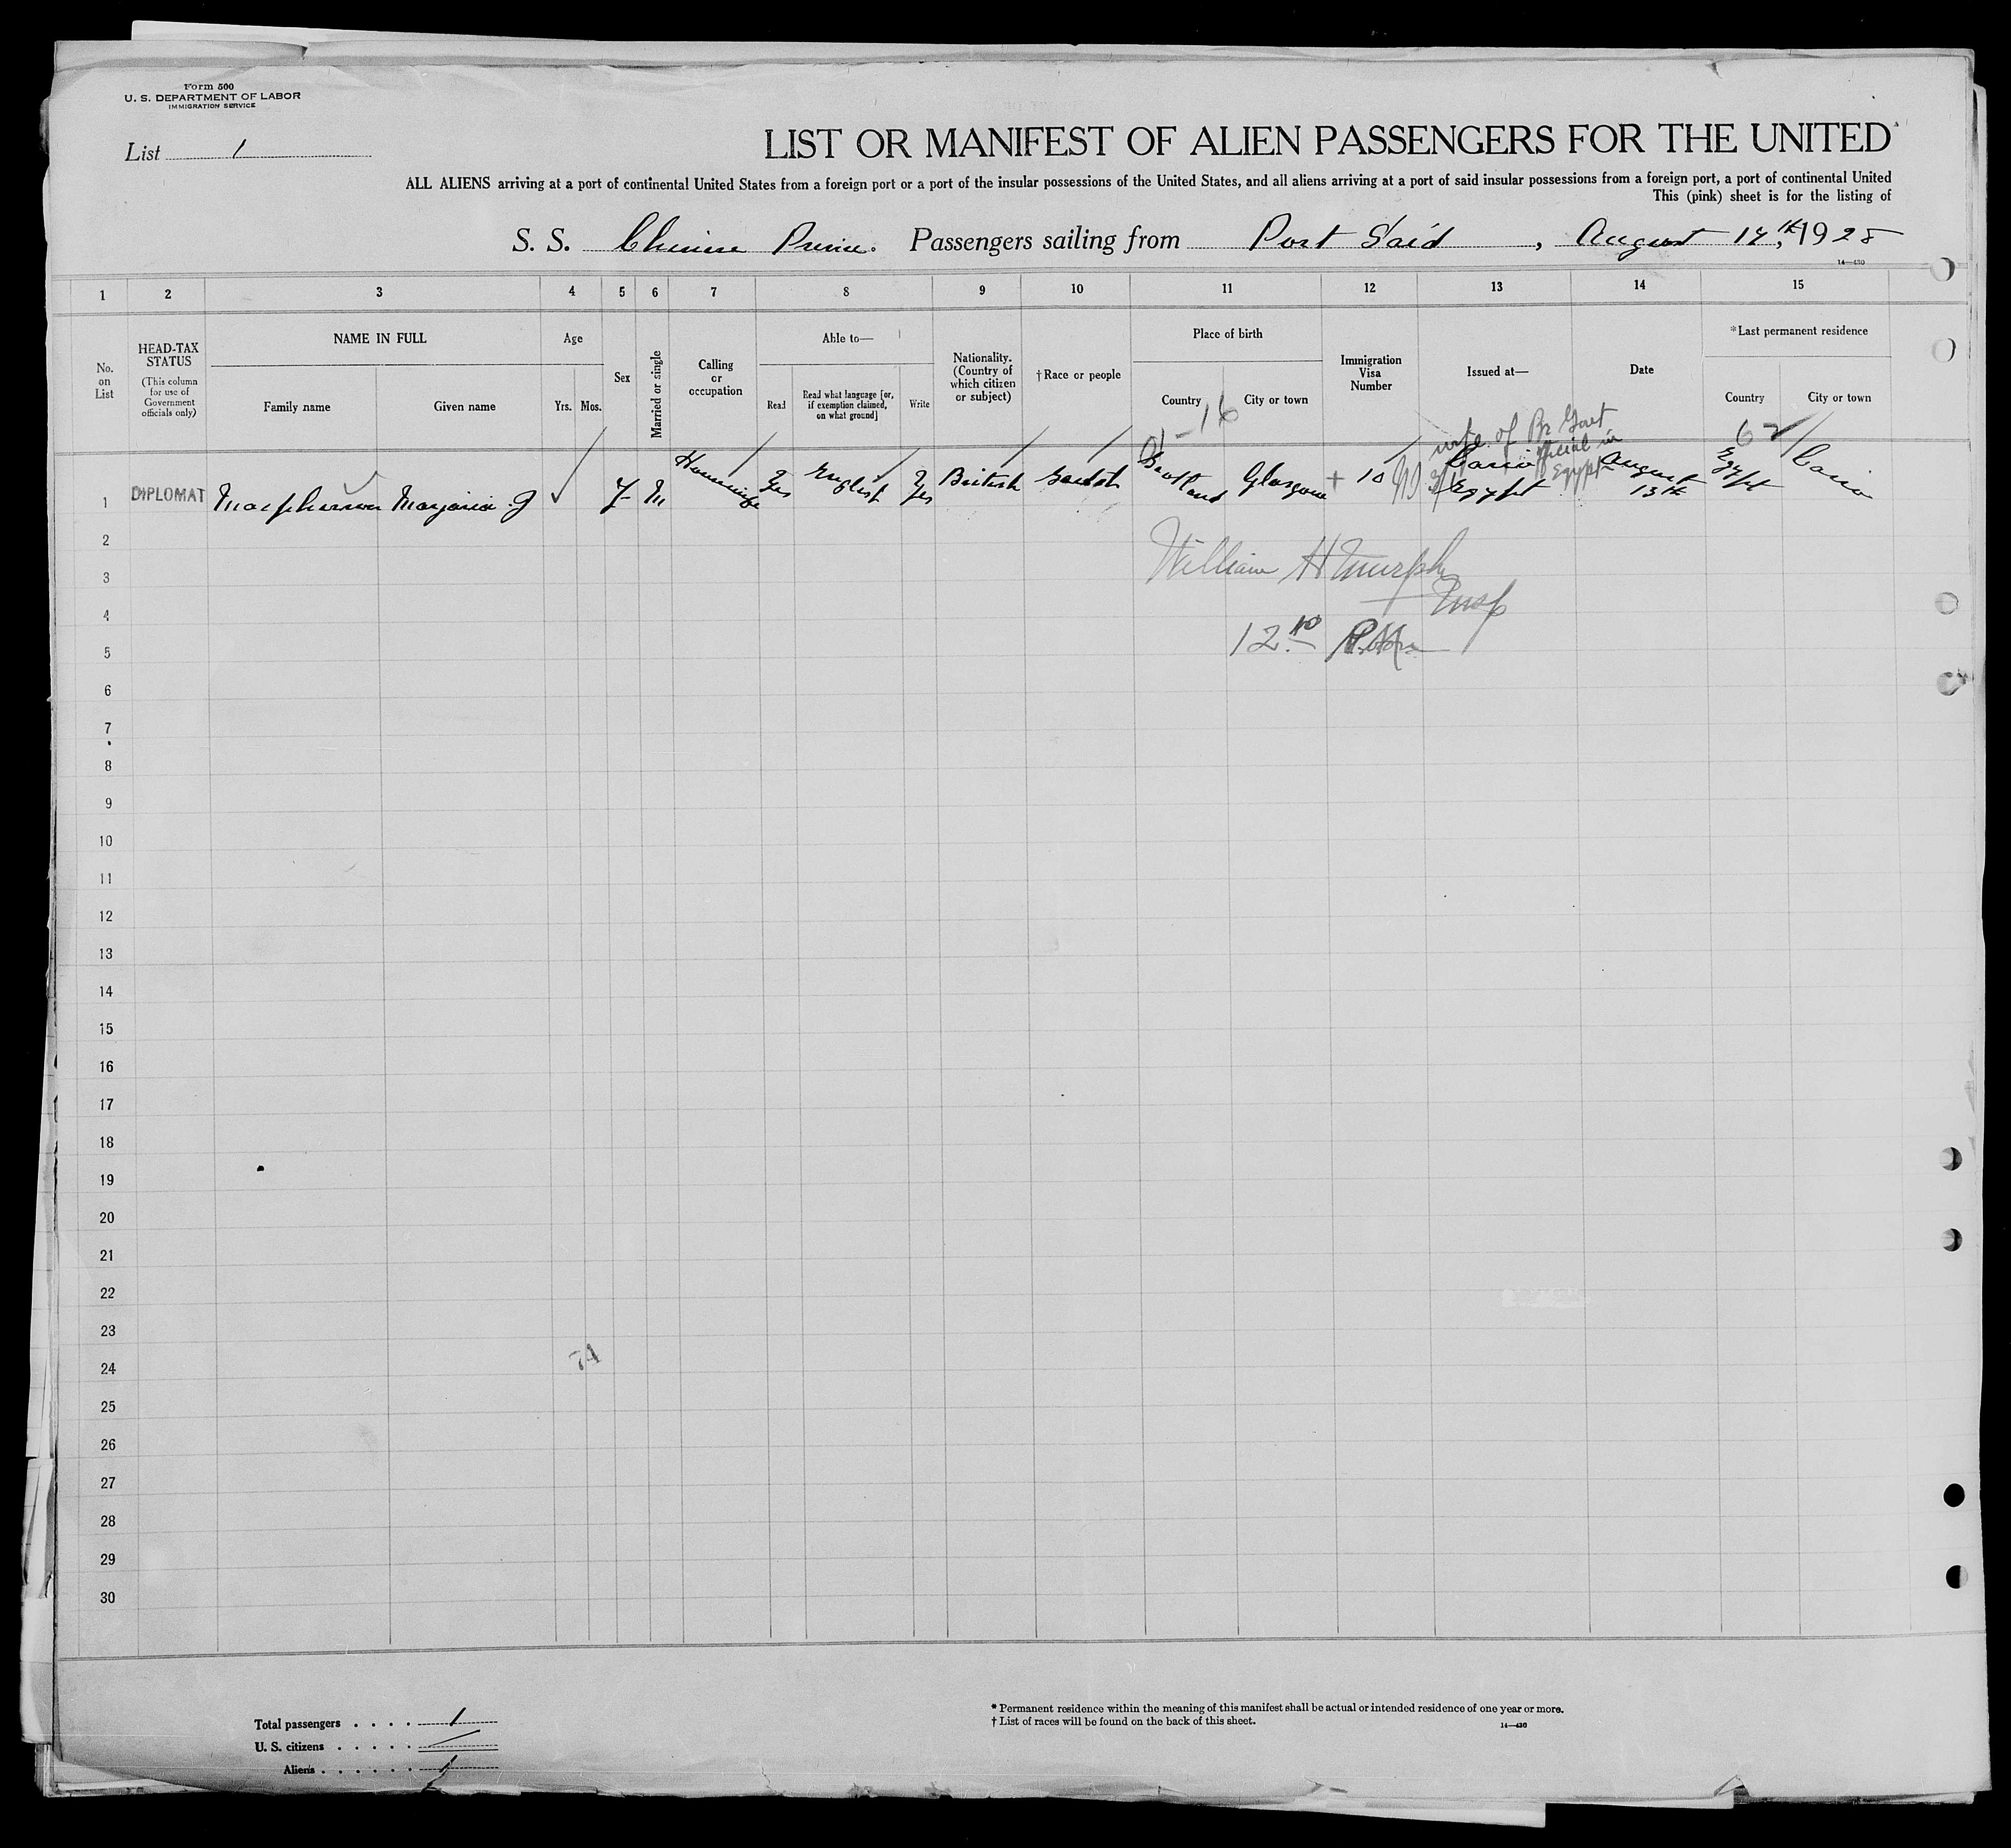 Form 500
U. S. DEPARTMENT OF LABOR
IMMIGRATION SERVICE
List 1
LIST OR MANIFEST OF ALIEN PASSENGERS FOR THE UNITED
ALL ALIENS arriving at a port of continental United States from a foreign port or a port of the insular possessions of the United States, and all aliens arriving at a port of said insular possessions from a foreign port, a port of continental United
This (pink) sheet is for the listing of
S. S. Chinese Prince. Passengers sailing from Port Said, August 14th, 1928
14—430
1 2 3 4 5 6 7 8 9 10 11 12 13 14 15
No. on List
HEAD-TAX STATUS
(This column for use of Government officials only)
NAME IN FULL
Family name
Given name
Age
Yrs. Mos.
Sex
Married or single
Calling or occupation
Able to—
Read
Read what language [or, if exemption claimed, on what ground]
Write
Nationality. (Country of which citizen or subject)
†Race or people
Place of birth
Country
City or town
Immigration Visa Number
Issued at—
Date
*Last permanent residence
Country
City or town
16
wife of Br Govt official in Egypt
62
1 DIPLOMAT Macpherson Marjorie J F M Housewife Yes English Yes British Scotch Scotland Glasgow + 10 Cairo Egypt August 13th Egypt Cairo
2
William H Murphy
3
Insp
4
12.10 P.M.
5
6
7
8
9
10
11
12
13
14
15
16
17
18
19
20
21
22
23
24
74
25
26
27
28
29
30
Total passengers . . . . 1
U. S. citizens . . . . .
Aliens . . . . . . 1
* Permanent residence within the meaning of this manifest shall be actual or intended residence of one year or more.
† List of races will be found on the back of this sheet.
14—430